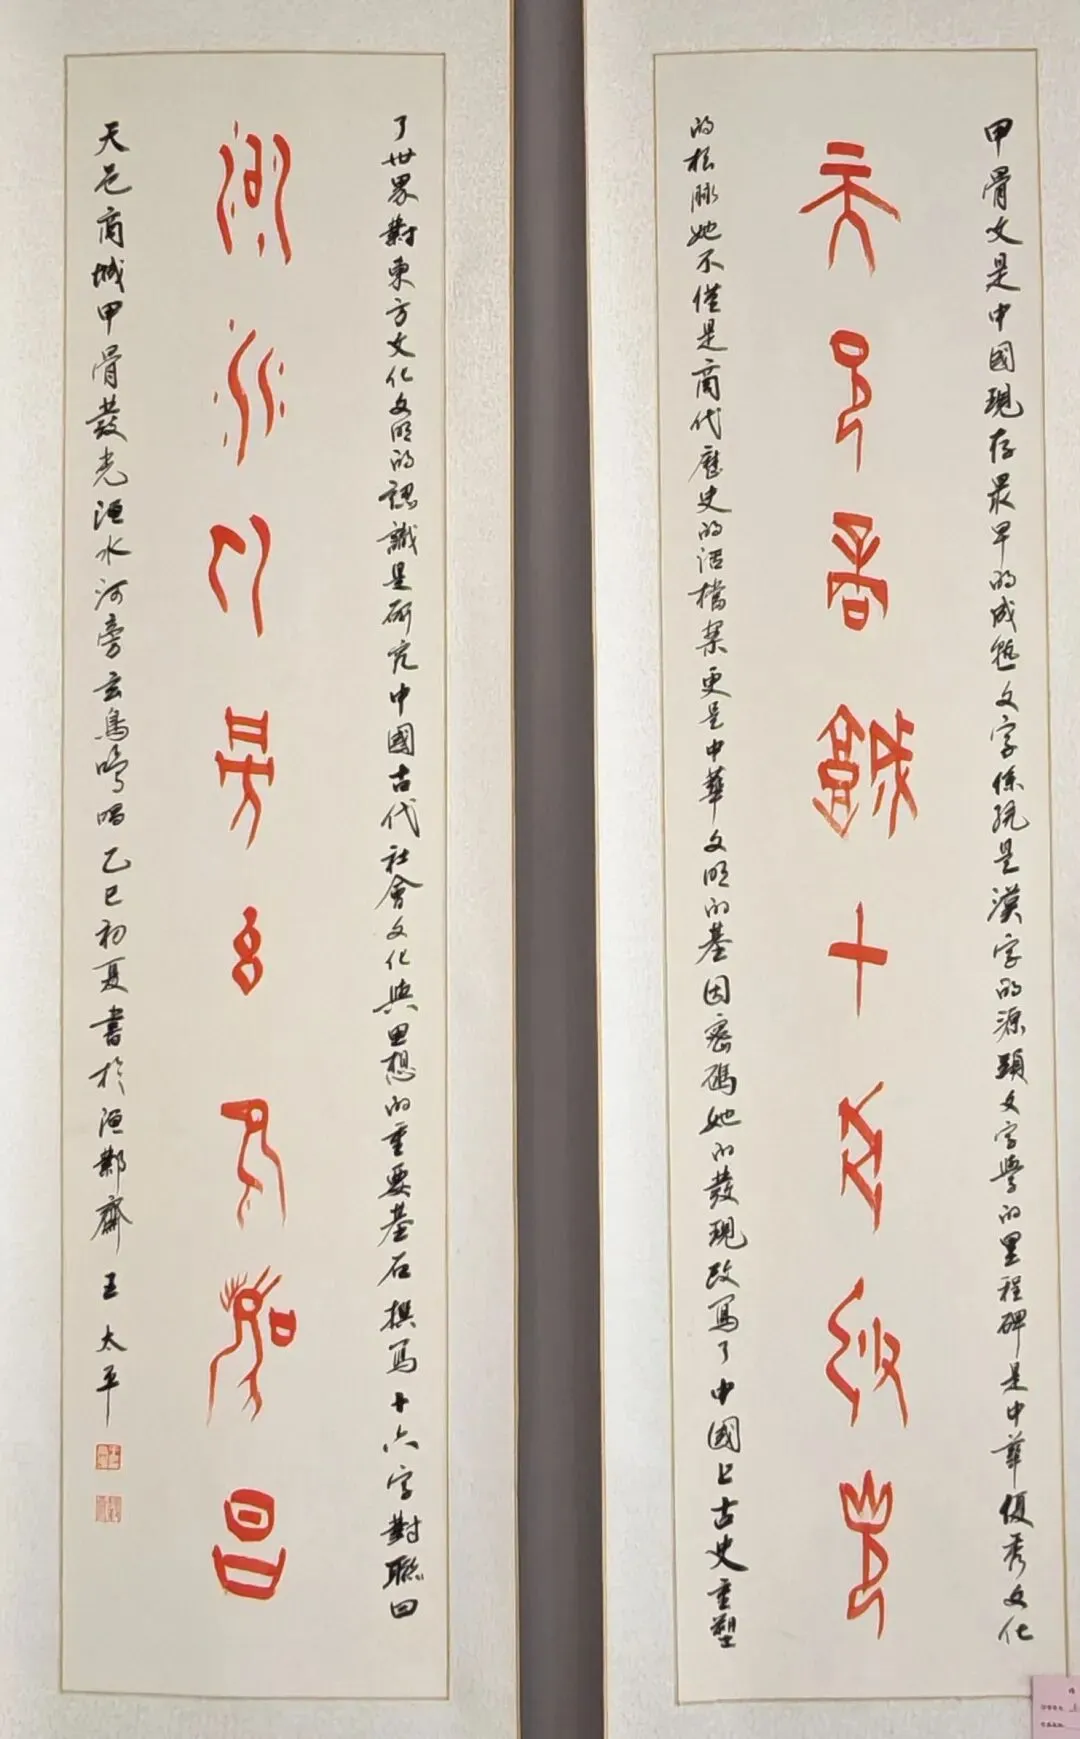 甲骨文是中國現存最早的成熟文字係統是漢字的源頭文字學的里程碑是中華優秀文化
天邑商城甲骨發光
的根脈她不僅是商代歷史的活檔案更是中華文明的基因密碼她的發現改寫了中國上古史重塑
了世界對東方文化文明的認識是研究中國古代社會文化與思想的重要基石撰寫十六字對聯曰
洹水河旁玄鳥鳴唱
天邑商城甲骨發光洹水河旁玄鳥鳴唱乙巳初夏書於洹鄴齋王太平